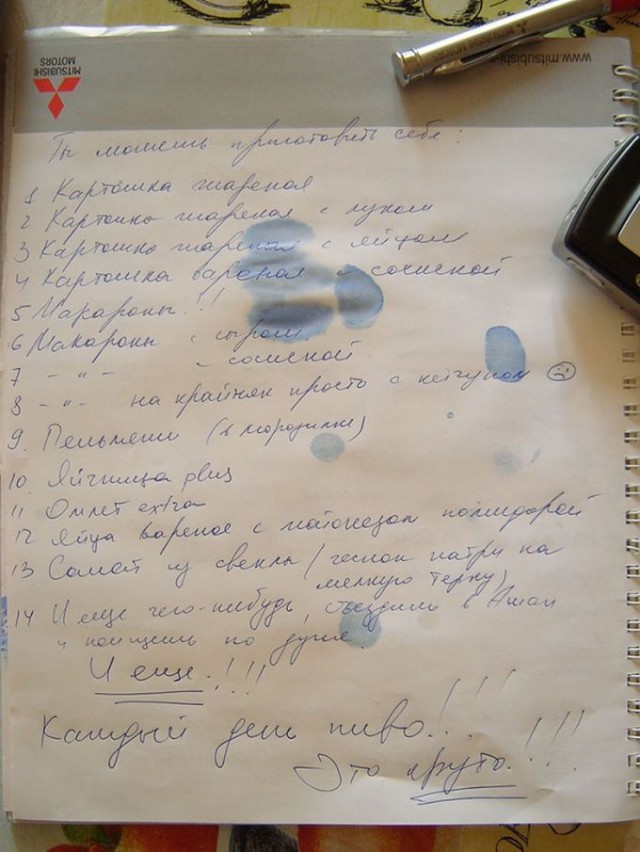 www.mitsubishi-
MITSUBISHI
MOTORS
MITSUBISHI MOTORS
Ты можешь приготовить себе:
1 Картошка жареная
2 Картошка жареная с луком
3 Картошка жареная с яйцом
4 Картошка вареная с сосиской
5 Макароны!!
6 Макароны с сыром
7 - " - - сосиской
8 - " - на крайняк просто с кетчупом ☹
9. Пельмени (в морозилке)
10. Яичница plus
11 Омлет extra
12 Яйца вареное с майонезом помидорой
13 Салат из свеклы (чеснок натри на
мелкую терку)
14 И еще чего-нибудь, съездишь в Ашан
и поищешь по душе.
И еще!!!
Каждый день пиво!!!
Это круто!!!